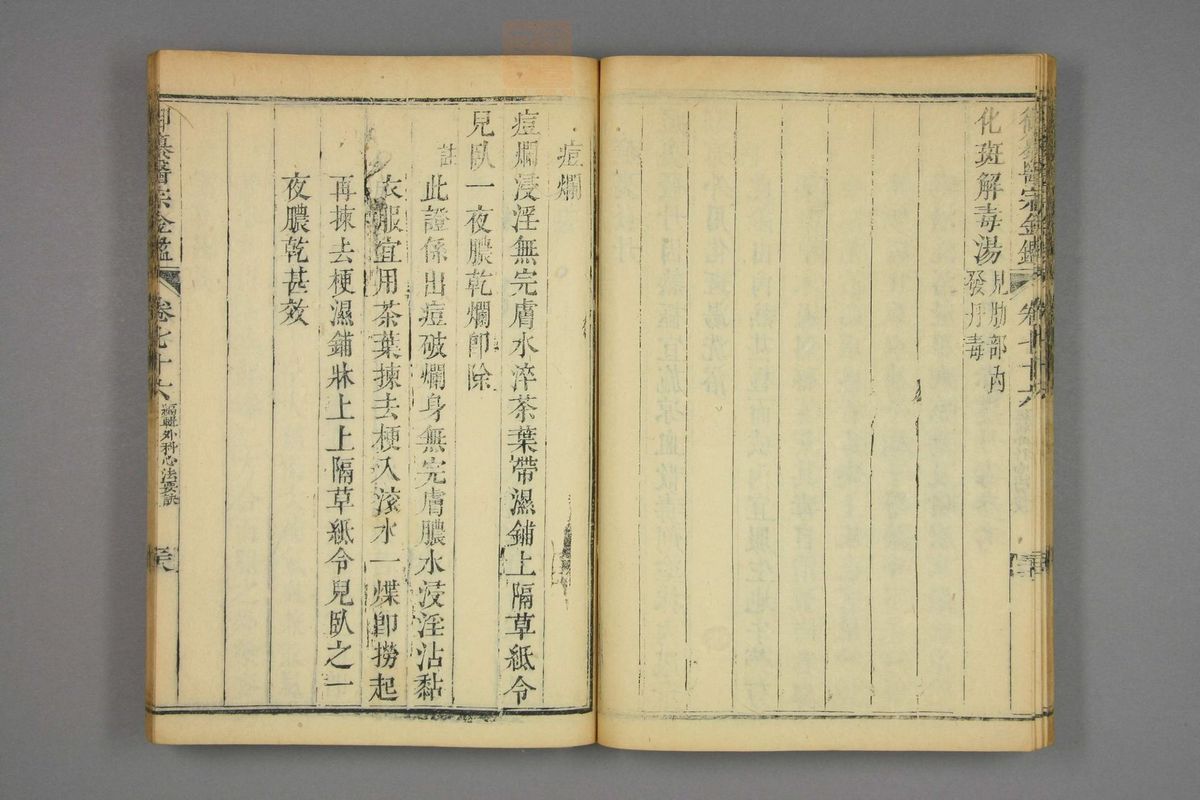 醫宗金鑑
卷七十六
化斑解毒湯見肋部內
發丹毒
痘爛
痘爛浸淫無完膚水淬茶葉帶濕鋪上隔草紙令
兒臥一夜膿乾爛即除
註此證係出痘破爛身無完膚膿水浸淫沾黏
衣服宜用茶葉揀去梗入滾水一煠即撈起
再揀去梗濕鋪牀上上隔草紙令兒臥之一
夜膿乾甚效
纂醫宗金鑑
卷七十六
編輯外科心法要訣